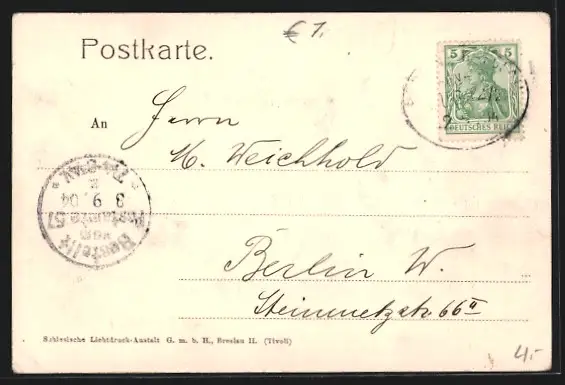 € 7,
Postkarte.
5 5
DEUTSCHES REICH
An
Herrn
M. Weichhold
Bestellt
vom
Postamte 57
8 9. 04
Berlin W.
Steinmetzstr. 66 II
Schlesische Lichtdruck-Anstalt G. m. b. H., Breslau II. (Tivoli)
4.-